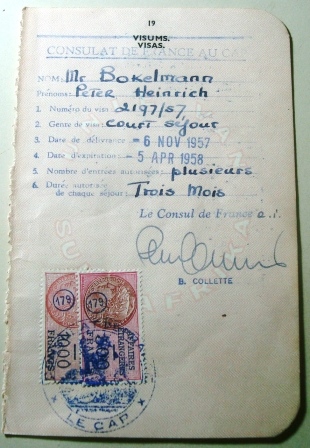 19
VISUMS.
VISAS.
CONSULAT DE FRANCE AU CAP
NOM: Mr Bokelmann
Prénoms: Peter Heinrich
1. Numéro du visa: 2197/57
2. Genre de visa: Court séjour
3. Date de délivrance - 6 NOV 1957
4. Date d'expiration - 5 APR 1958
5. Nombre d'entrées autorisées: plusieurs
6. Durée autorisée
de chaque séjour: Trois Mois
Le Consul de France a. i.
B. COLLETTE
179
179
AFFAIRES
ETRANGERES
FRANCS
LE CAP